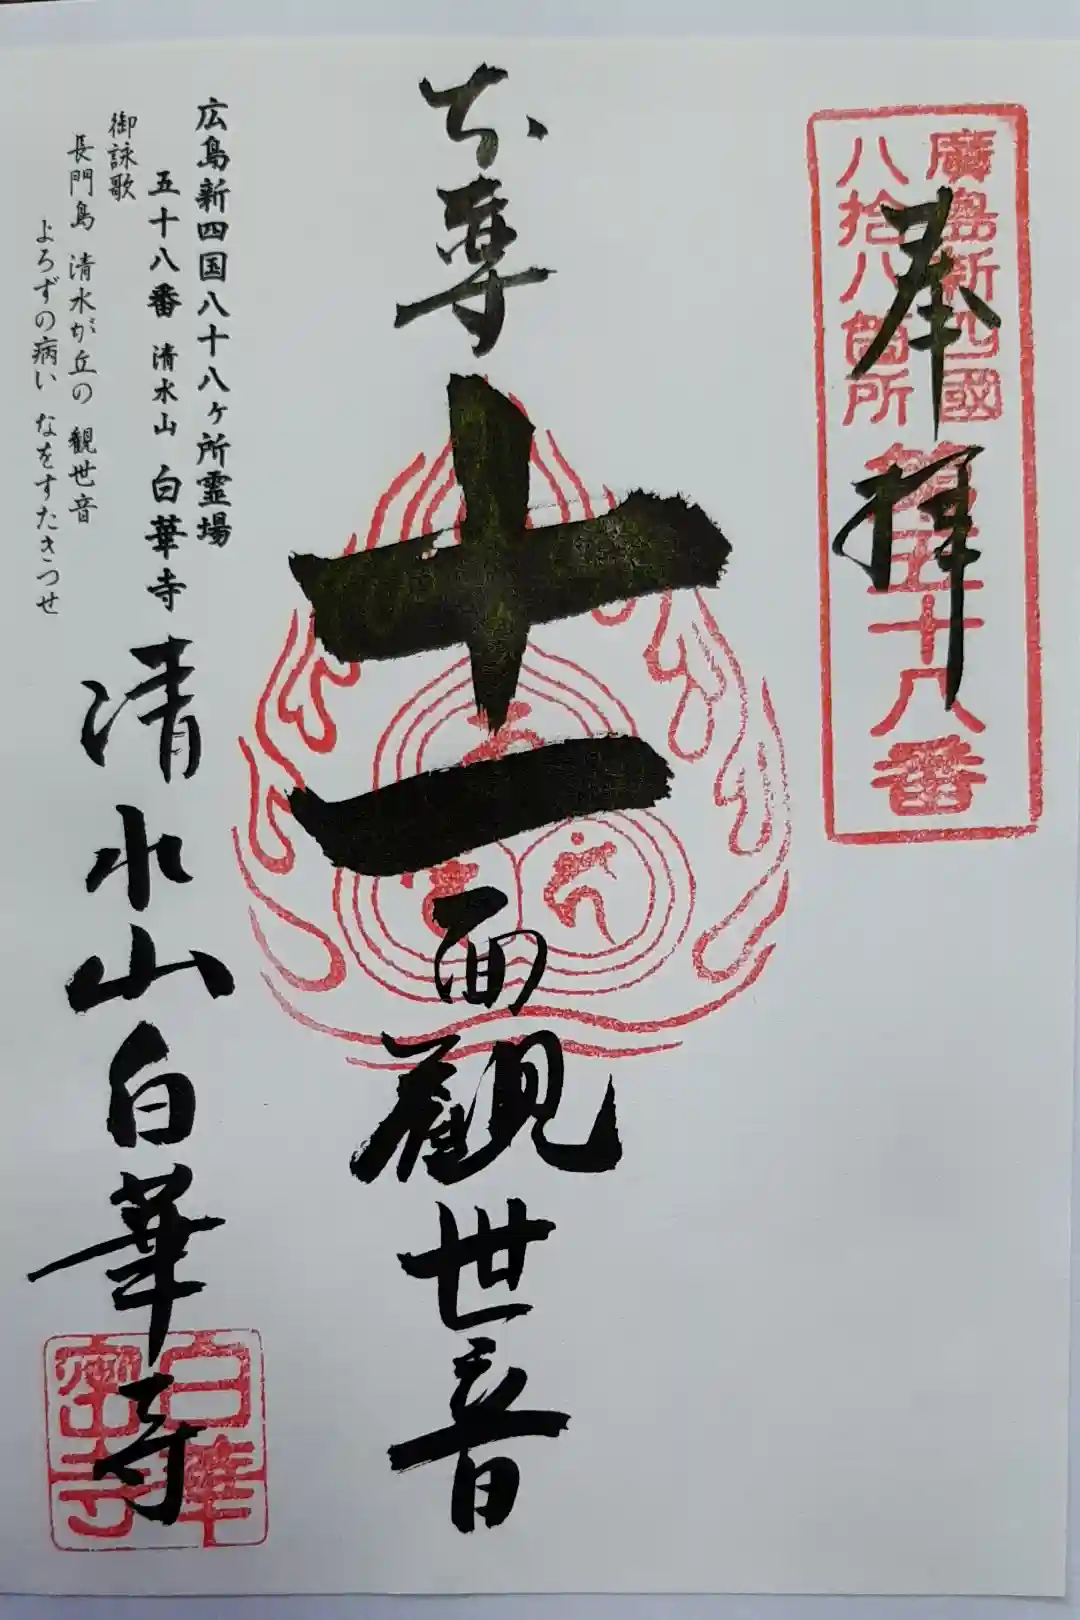 奉拝
廣島新四國
八拾八箇所
第五十八番
本尊 十一面観世音
広島新四国八十八ヶ所霊場
五十八番 清水山 白華寺
御詠歌
長門島 清水が丘の 観世音
よろずの病い なをすたきつせ
清水山白華寺
白華
密寺